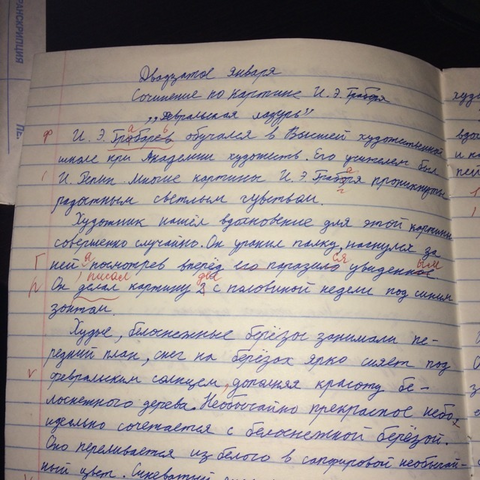 ТРАНСКРИПЦИЯ
Двадцатое января
Сочинение по картине И. Э Грабаря
„Февральская лазурь"
И. Э Грабарев обучался в Высшей художественной
школе при Академии художеств. Его учителем был
И. Репин Многие картины И. Э Грабаря проникнуты
радостным светлым чувством.
Художник нашёл вдохновение для этой картины
совершенно случайно. Он уронил палку, нагнулся за
ней посмотрев вперёд его поразило увиденное
писал два
Он делал картину 2 с половиной недели под синим
зонтом.
Худые, белоснежные берёзы занимали пе-
редний план, снег на берёзах ярко сияет под
февральским солнцем, дополняя красоту бе-
лоснежного дерева. Необычайно прекрасное небо
идеально сочетается с белоснежной берёзой.
Оно переливается из белого в сапфировой необычай-
ный цвет.